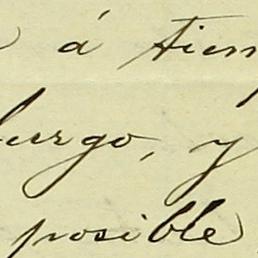 á tiem
burgo, y
posible